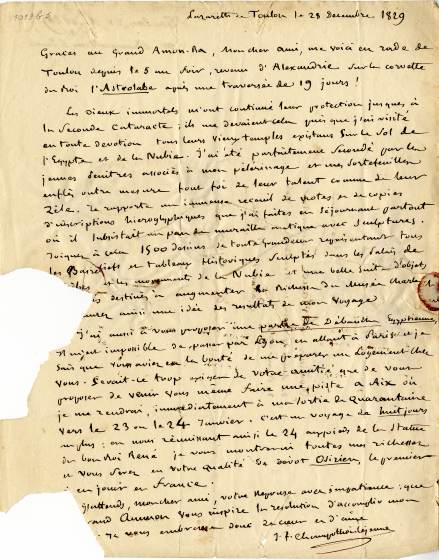 Lazareth de Toulon le 28 Decembre 1829
Graces au Grand Amon-Ra, Mon cher ami, me voici en rade de
Toulon depuis le 5 au soir, revenu d'Alexandrie sur la corvette
du Roi l'Astrolabe après une traversée de 19 jours!
Les Dieux immortels m'ont continué leur protection jusques à
la Seconde Cataracte; ils me devaient cela puis que j'ai visité
en toute devotion tous leurs vieux temples existans sur le sol de
l'Egypte et de la Nubie. J'ai été parfaitement secondé par les
jeunes peintres associés à mon pélerinage et mes portefeuilles
enflés outre mesure font foi de leur talent comme de leur
Zèle. Je rapporte un immense recueil de notes et de copies
d'inscriptions hieroglyphiques que j'ai faites en séjournant partout
où il subsistait un pan de muraille antique avec sculptures.
Joignez à cela 1500 dessins de toute grandeur représentant tous
les Basreliefs et tableaux Historiques sculptés dans les Palais de
et les monumens de la Nubie et une belle suite d'objets
destinés à augmenter la Richesse du Musée Charles
aurez ainsi une idée des resultats de mon voyage
J'ai aussi à vous proposer une partie de Débauche Egyptienne.
Il m'est impossible de passer par Lyon en allant à Paris et je
sais que vous aviez eu la bonté de me preparer un logement chez
vous. Serait-ce trop exiger de votre amitié que de vous
proposer de venir vous même faire une piste à Aix où
je me rendrai immédiatement à ma sortie de Quarantaine
vers le 23 ou le 24 Janvier. C'est un voyage de huit jours
au plus: en nous réunissant ainsi le 24 aux pieds de la Statue
du bon Roi René je vous montrerai toutes mes richesses
et vous serez en votre qualité de dévot Osirien, le premier
en jour en France.
J'attends, mon cher ami, votre reponse avec impatience: que
grand Ammon vous inspire la resolution d'accomplir mon
Je vous embrasse donc de cœur et d'ame
J. F. Champollion le jeune